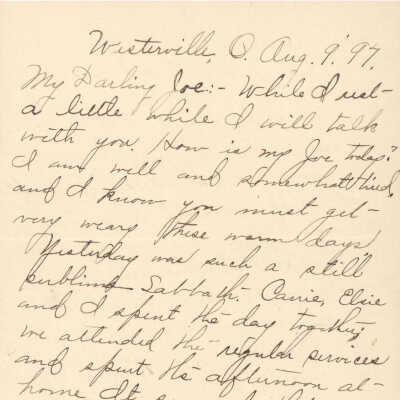 Westerville, O. Aug. 9' 97.
My Darling Joe:- While I rest
a little while I will talk
with you. How is my Joe today?
I am well and somewhat tired,
and I know you must get
very weary these warm days.
Yesterday was such a still
sublime Sabbath. Carrie, Elsie
and I spent the day together;
we attended the regular services
and spent the afternoon at
home. It